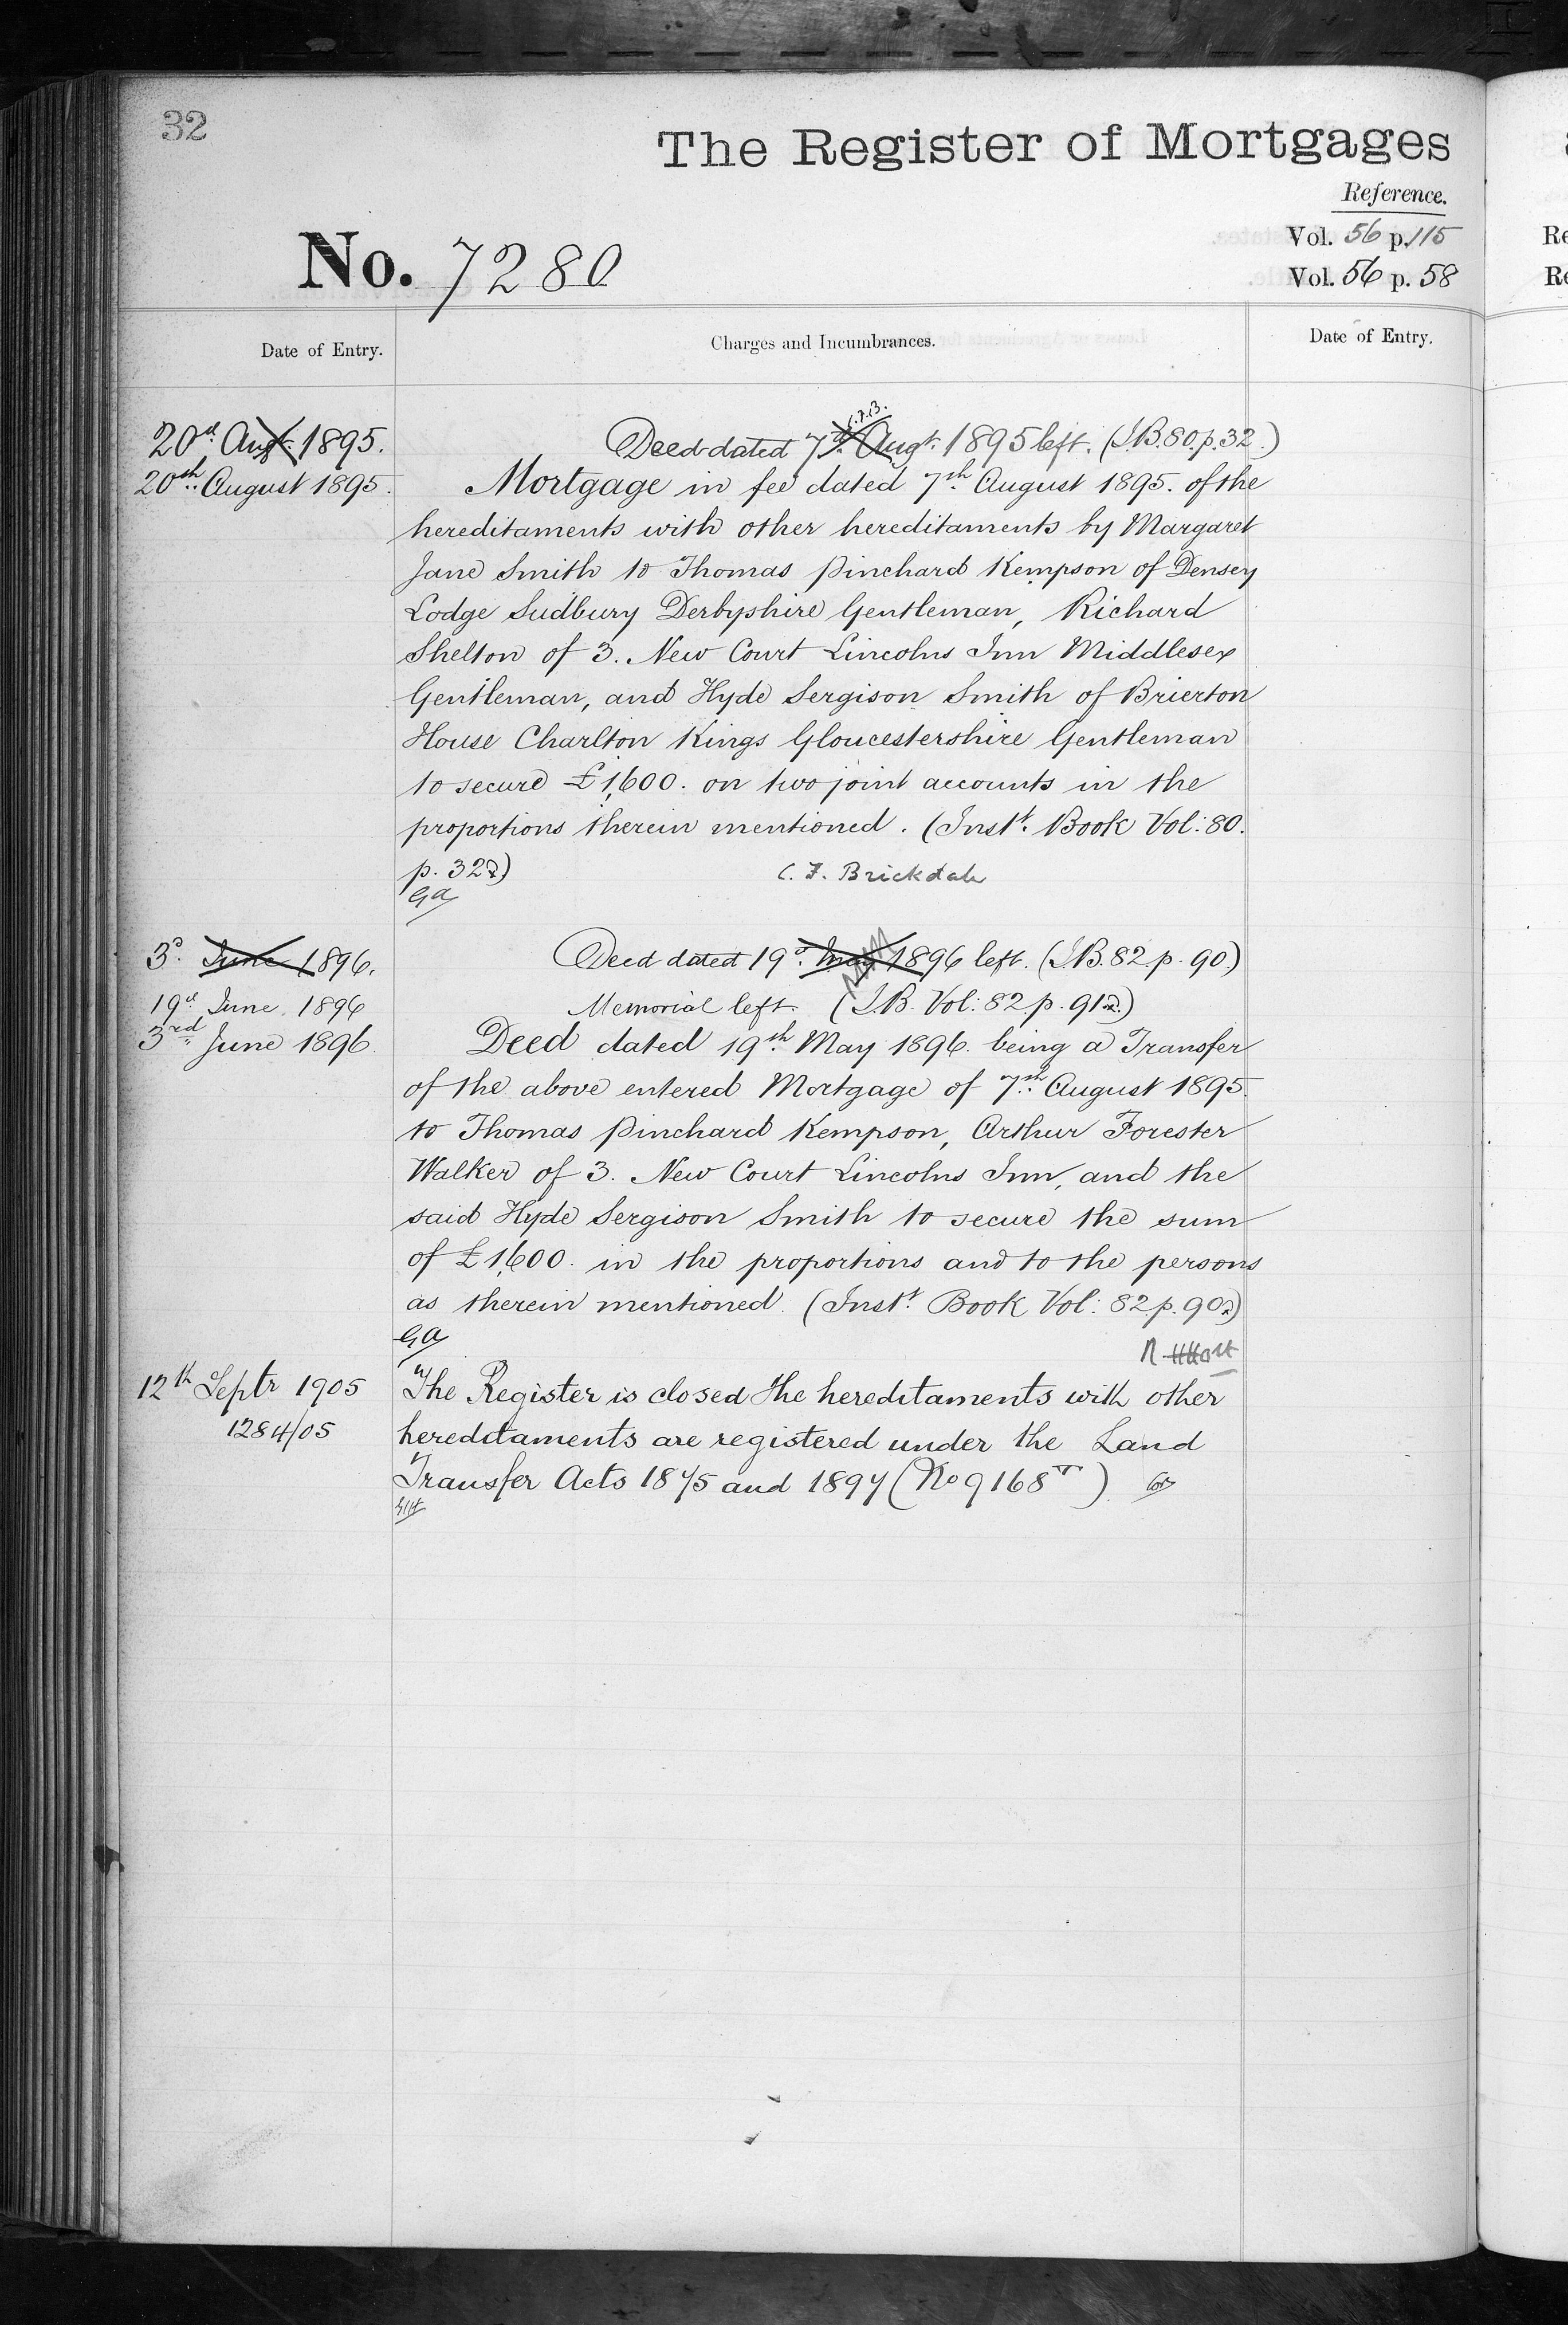 32
The Register of Mortgages
Reference.
No. 7280
Vol. 56 p. 115
Vol. 56 p. 58
Date of Entry.
Charges and Incumbrances.
Date of Entry.
20d. Augt. 1895.
C.F.B.
Deed dated 7th. Augt. 1895 left. (I.B. 80. p. 32.)
20th. August 1895.
Mortgage in fee dated 7th. August 1895. of the
hereditaments with other hereditaments by Margaret
Jane Smith to Thomas Pinchard Kempson of Densey
Lodge Sudbury Derbyshire Gentleman, Richard
Shelton of 3. New Court Lincolns Inn Middlesex
Gentleman, and Hyde Sergison Smith of Brierton
House Charlton Kings Gloucestershire Gentleman
to secure £1,600. on two joint accounts in the
proportions therein mentioned. (Instt. Book Vol: 80.
p. 32)
C. F. Brickdale
GA
3d. June 1896.
Deed dated 19d. May 1896 left. (I.B. 82. p. 90)
19d June 1896
Memorial left. (I.B. Vol: 82 p. 91)
3rd. June 1896
Deed dated 19th. May 1896. being a Transfer
of the above entered Mortgage of 7th. August 1895.
to Thomas Pinchard Kempson, Arthur Forester
Walker of 3. New Court Lincolns Inn, and the
said Hyde Sergison Smith to secure the sum
of £1,600. in the proportions and to the persons
as therein mentioned. (Instt. Book Vol: 82 p. 90)
GA
12th Septr 1905
The Register is closed the hereditaments with other
1284/05
hereditaments are registered under the Land
Transfer Acts 1875 and 1897 (No 9168T)
Re
Re